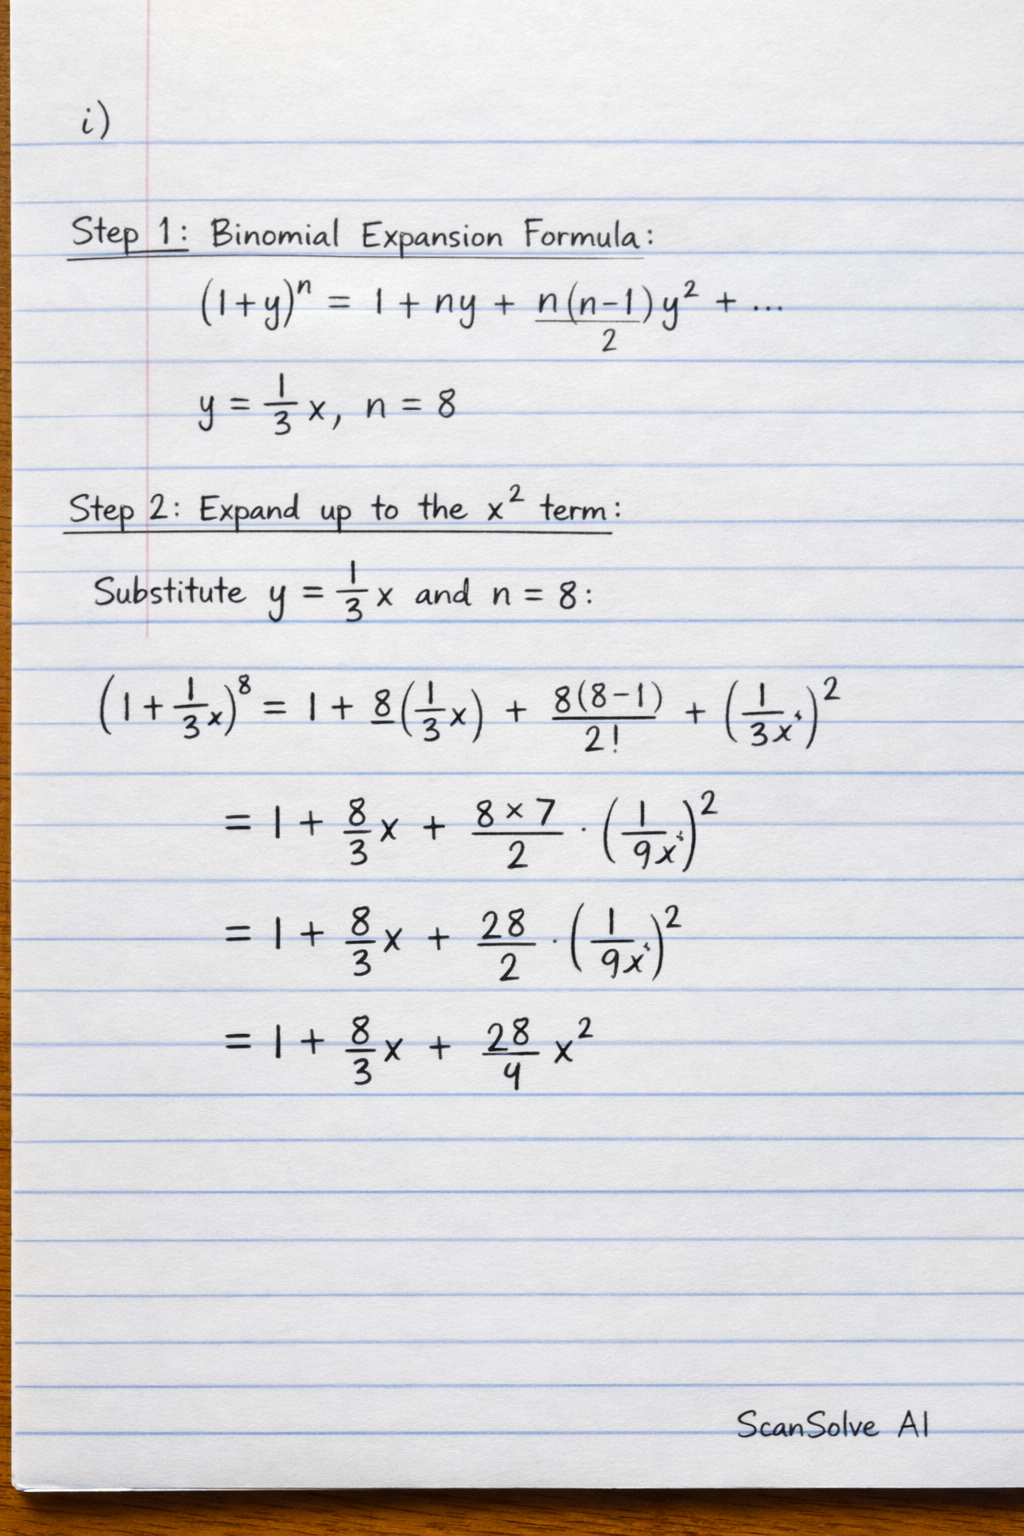 i)
Step 1: Binomial Expansion Formula:
(1+y)^n = 1 + ny + n(n-1)/2 y^2 + ...
y = 1/3 x, n = 8
Step 2: Expand up to the x^2 term:
Substitute y = 1/3 x and n = 8:
(1 + 1/3 x)^8 = 1 + 8(1/3 x) + 8(8-1)/2! + (1/3x)^2
= 1 + 8/3 x + 8×7/2 · (1/9x)^2
= 1 + 8/3 x + 28/2 · (1/9x)^2
= 1 + 8/3 x + 28/4 x^2
ScanSolve AI